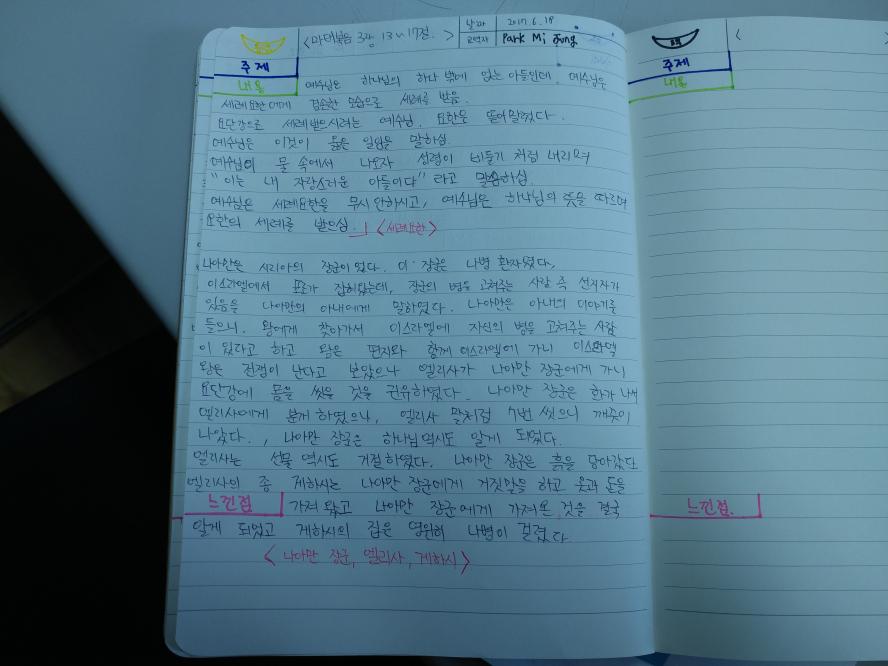 <마태복음 3장 13~17절.>
날짜 2017.6.18
교역자 Park Mi Jung
주제
내용
예수님은 하나님의 하나 밖에 없는 아들인데, 예수님은
세례요한에게 겸손한 모습으로 세례를 받음.
요단강으로 세례받으시려는 예수님. 요한은 뜯어말렸다.
예수님은 이것이 옳은 일임을 말하심
예수님이 물 속에서 나오자 성령이 비둘기 처럼 내리며
"이는 내 자랑스러운 아들이다" 라고 말씀하심
예수님은 세례요한을 무시 안하시고, 예수님은 하나님의 뜻을 따르며
요한의 세례를 받으심. <세례요한>
나아만은 시리아의 장군이었다. 이 장군은 나병 환자였다,
이스라엘에서 포로가 잡혀왔는데, 장군의 병을 고쳐주는 사람 즉 선지자가
있음을 나아만의 아내에게 말하였다. 나아만은 아내의 이야기를
들으니. 왕에게 찾아가서 이스라엘에 자신의 병을 고쳐주는 사람
이 있다고 하고 왕은 편지와 함께 이스라엘에 가니 이스라엘
왕은 전쟁이 난다고 보았으나 엘리사가 나아만 장군에게 가니
요단강에 몸을 씻을 것을 권유하였다. 나아만 장군은 화가 나서
엘리사에게 분개 하였으나, 엘리사 말처럼 7번 씻으니 깨끗이
나았다., 나아만 장군은 하나님 역시도 알게 되었다.
엘리사는 선물 역시도 거절하였다. 나아만 장군은 흙을 담아갔다
엘리사의 종 게하시는 나아만 장군에게 거짓말을 하고 옷과 돈을
느낀점 가져 왔고 나아만 장군에게 가져온 것을 결국
알게 되었고 게하시의 집은 영원히 나병이 걸렸다
<나아만 장군, 엘리사, 게하시>
책
<
주제
내용
느낀점.